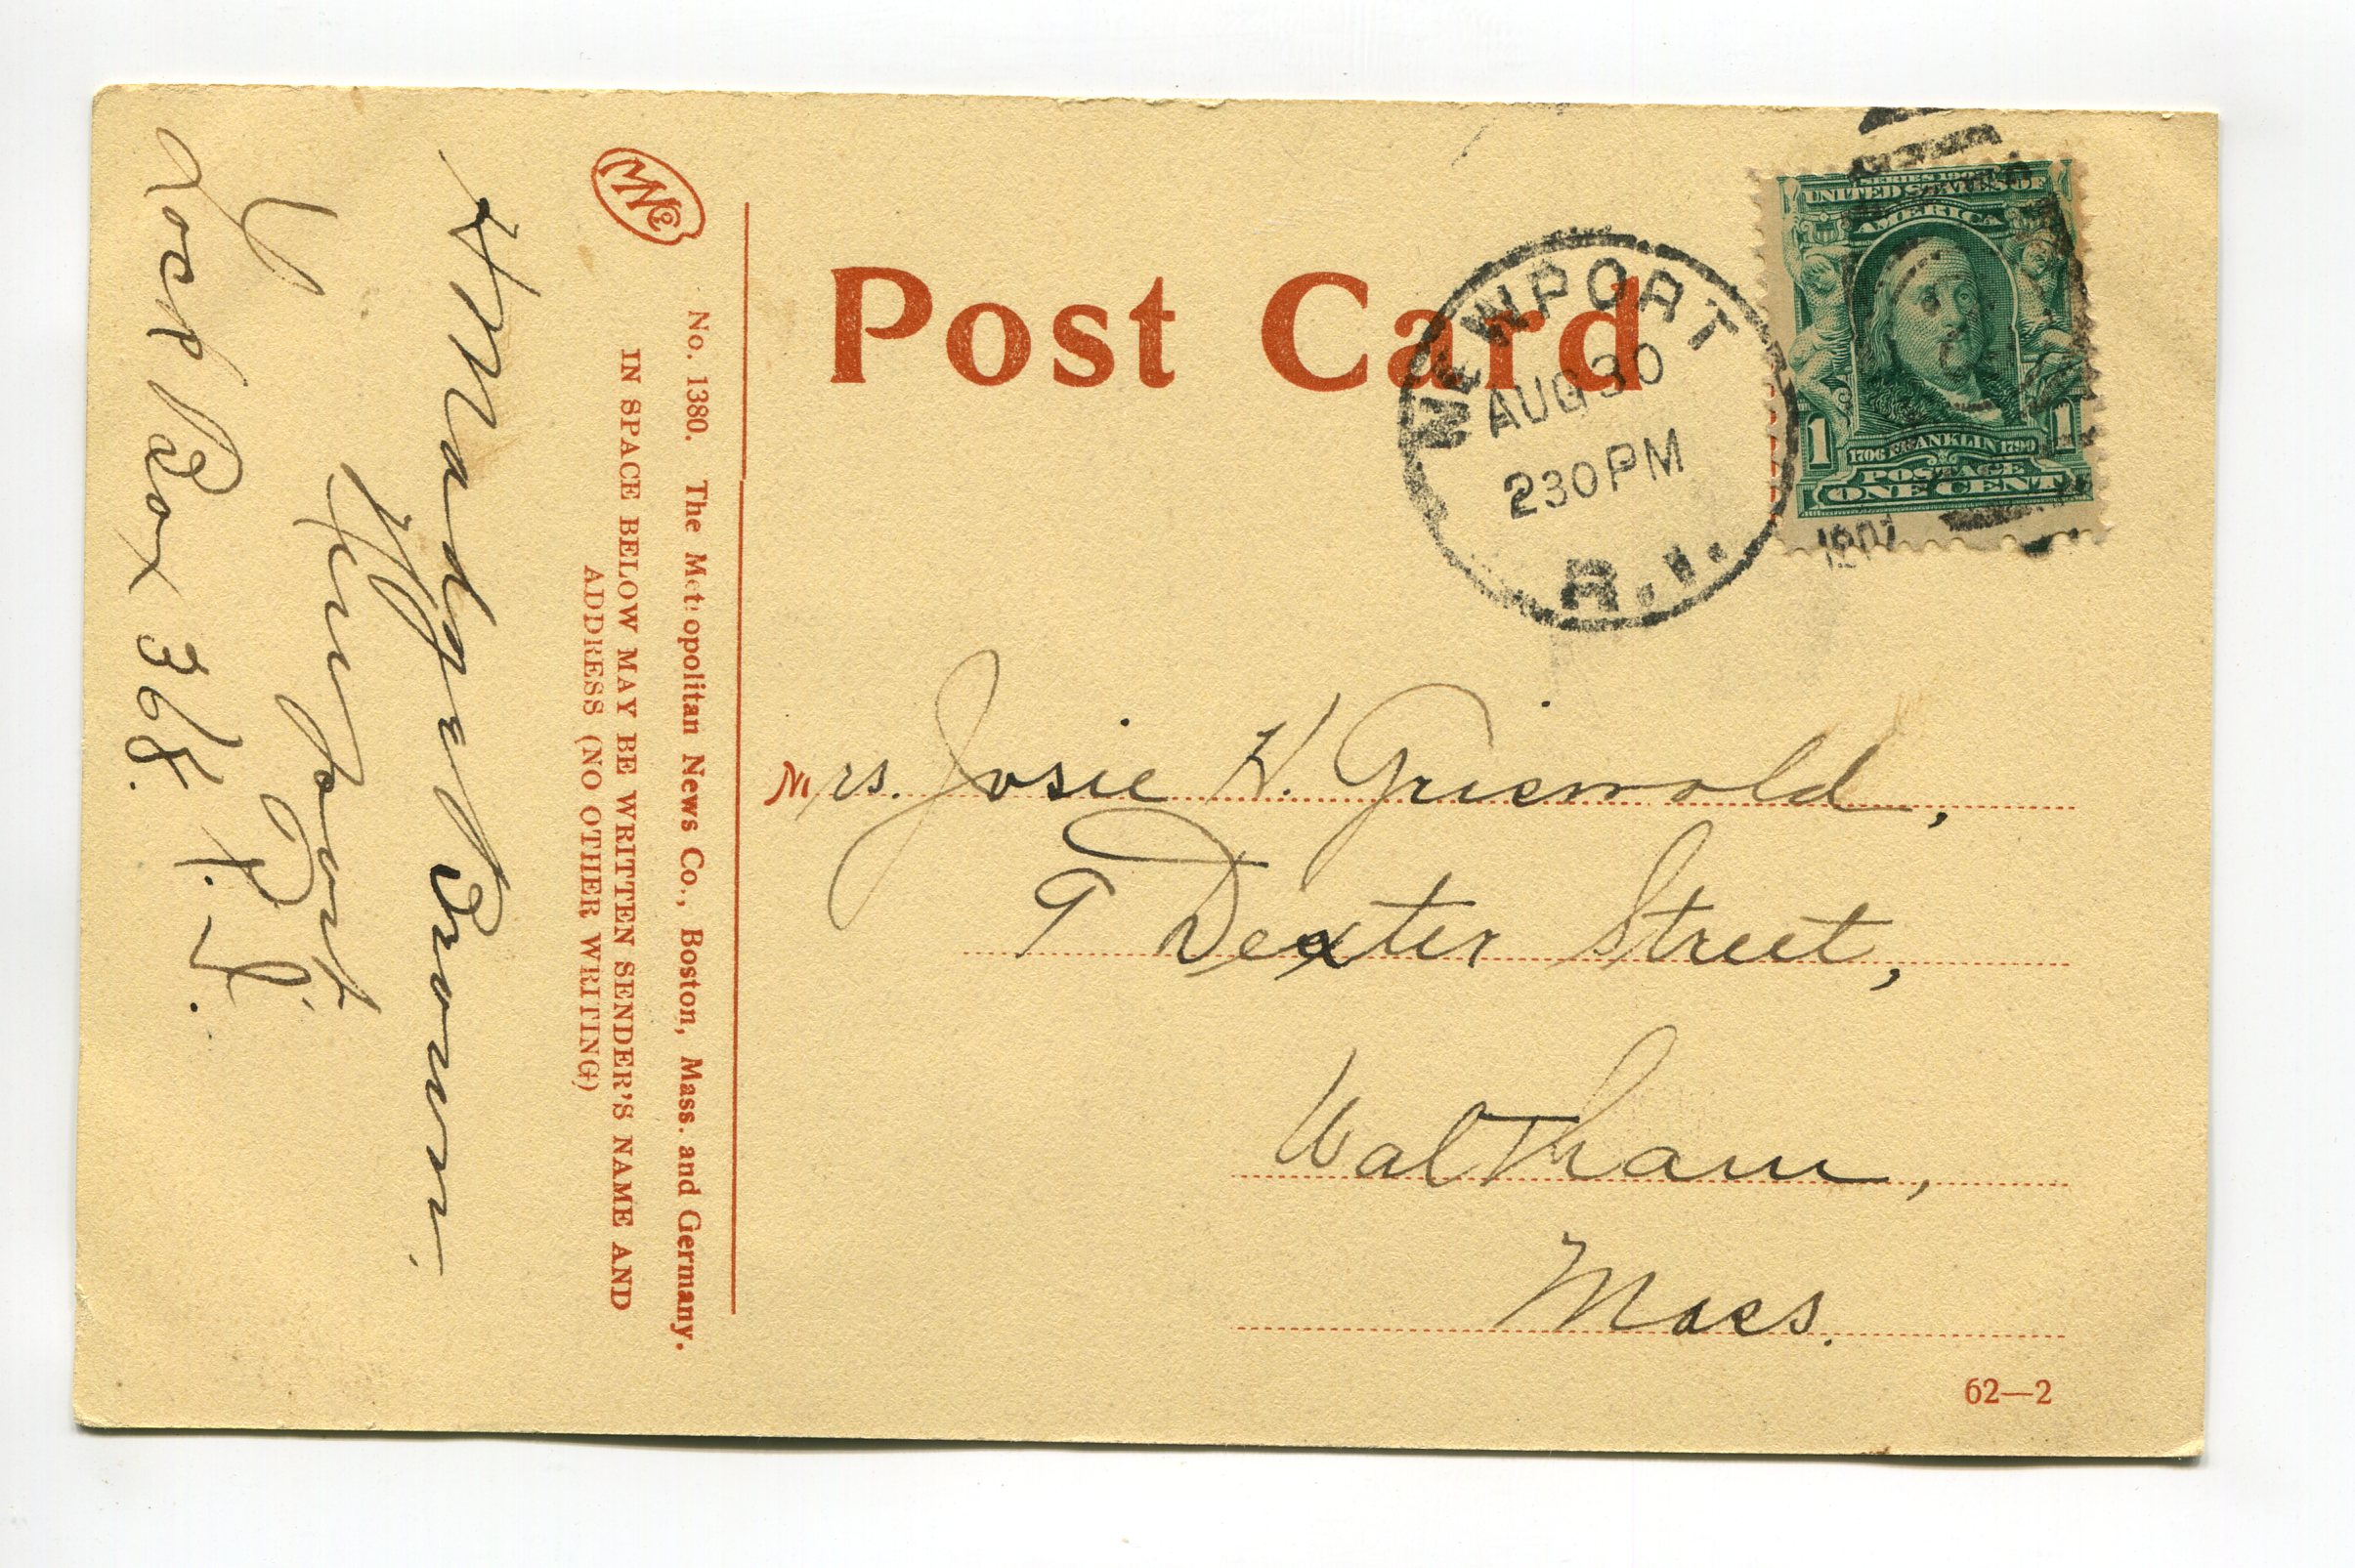 Post Card
NEWPORT
AUG 30
230 PM
R.I.
1907
SERIES 1902
UNITED STATES OF
AMERICA
1706 FRANKLIN 1790
1 1
POSTAGE
ONE CENT
Mrs. Josie H. Griswold,
9 Dexter Street,
Waltham,
Mass.
62—2
No. 1380. The Metropolitan News Co., Boston, Mass. and Germany.
IN SPACE BELOW MAY BE WRITTEN SENDER'S NAME AND
ADDRESS (NO OTHER WRITING)
Brown.
Newport
R. I.
Lock Box 368.